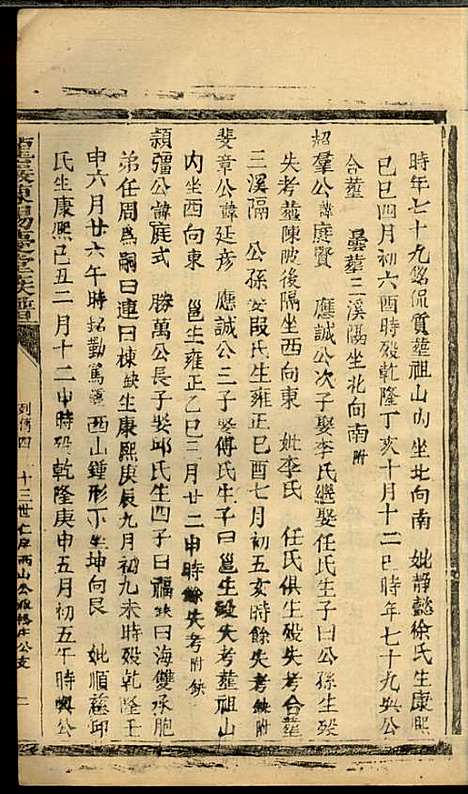 時年七十九銘侃質葬祖山內坐北向南 妣靜懿徐氏生康熙
己巳四月初六酉時殁乾隆丁亥十月十二巳時年七十九與公
合葬 曇葬三溪隔坐北向南附
紹羣公諱賡賢 應誠公次子娶李氏繼娶任氏生子曰公孫生殁
失考葬陳陂後隔坐西向東 妣李氏 任氏俱生殁失考合葬
三溪隔 公孫娶段氏生雍正己酉七月初五亥時餘失考附缺
斐章公諱廷彥 應誠公三子娶傅氏生子曰邕生殁失考葬祖山
內坐西向東 邕生雍正乙巳三月廿二申時餘失考附缺
穎彊公諱庭式 勝萬公長子娶邱氏生四子曰福缺曰海雙承胞
弟任周為嗣曰連曰棟缺生康熙庚辰九月初九未時殁乾隆壬
申六月廿六午時銘勤篤葬西山鍾形下坐坤向艮 妣順慈邱
氏生康熙己丑二月十二申時殁乾隆庚申五月初五午時與公
列傳四 十三世仁房西山公派 公支